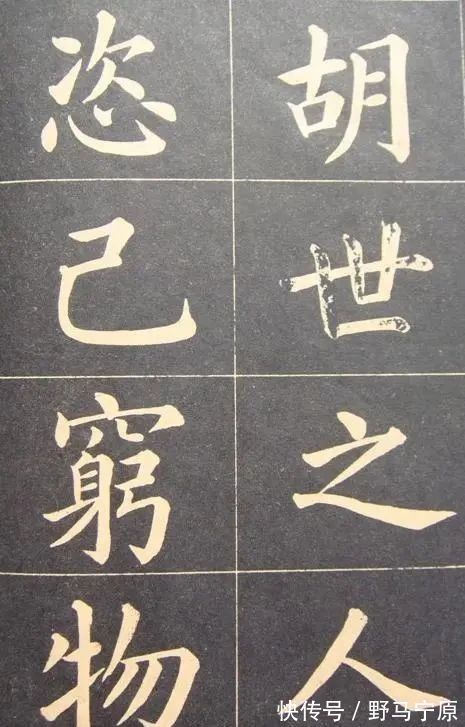 胡世之人
恣己窮物
快传号／野马宁原